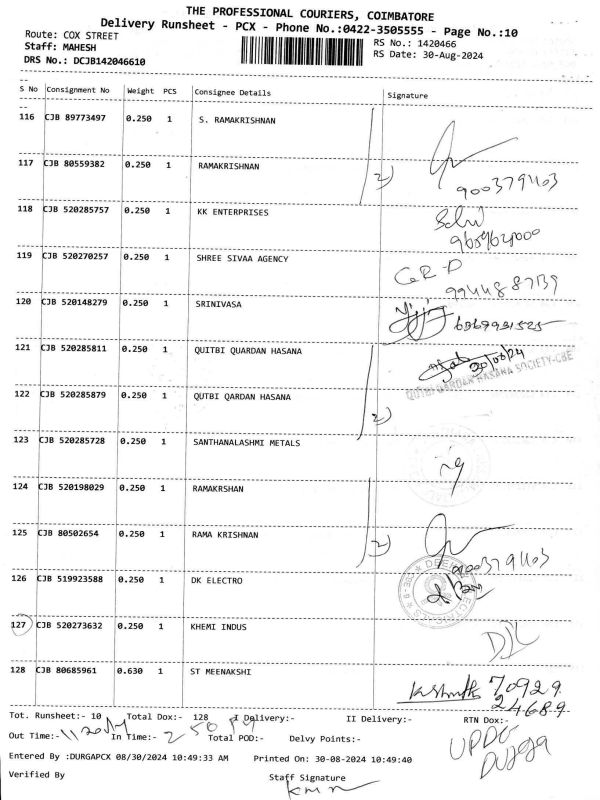 THE PROFESSIONAL COURIERS, COIMBATORE
Delivery Runsheet - PCX - Phone No.:0422-3505555 - Page No.:10
Route: COX STREET
RS No.: 1420466
Staff: MAHESH
RS Date: 30-Aug-2024
DRS No.: DCJB142046610
S No Consignment No Weight PCS Consignee Details Signature
116 CJB 89773497 0.250 1 S. RAMAKRISHNAN
117 CJB 80559382 0.250 1 RAMAKRISHNAN 2)
9003791103
118 CJB 520285757 0.250 1 KK ENTERPRISES
119 CJB 520270257 0.250 1 SHREE SIVAA AGENCY
120 CJB 520148279 0.250 1 SRINIVASA
121 CJB 520285811 0.250 1 QUITBI QUARDAN HASANA
QUTBI QARDAN HASANA SOCIETY-CBE
122 CJB 520285879 0.250 1 QUTBI QARDAN HASANA 2)
123 CJB 520285728 0.250 1 SANTHANALASHMI METALS
124 CJB 520198029 0.250 1 RAMAKRSHAN
125 CJB 80502654 0.250 1 RAMA KRISHNAN 2)
9003791103
126 CJB 519923588 0.250 1 DK ELECTRO
127 CJB 520273632 0.250 1 KHEMI INDUS
128 CJB 80685961 0.630 1 ST MEENAKSHI
70929
24689
Tot. Runsheet:- 10 Total Dox:- 128 I Delivery:- II Delivery:- RTN Dox:-
Out Time:- In Time:- Total POD:- Delvy Points:-
Entered By :DURGAPCX 08/30/2024 10:49:33 AM Printed On: 30-08-2024 10:49:40
Verified By Staff Signature